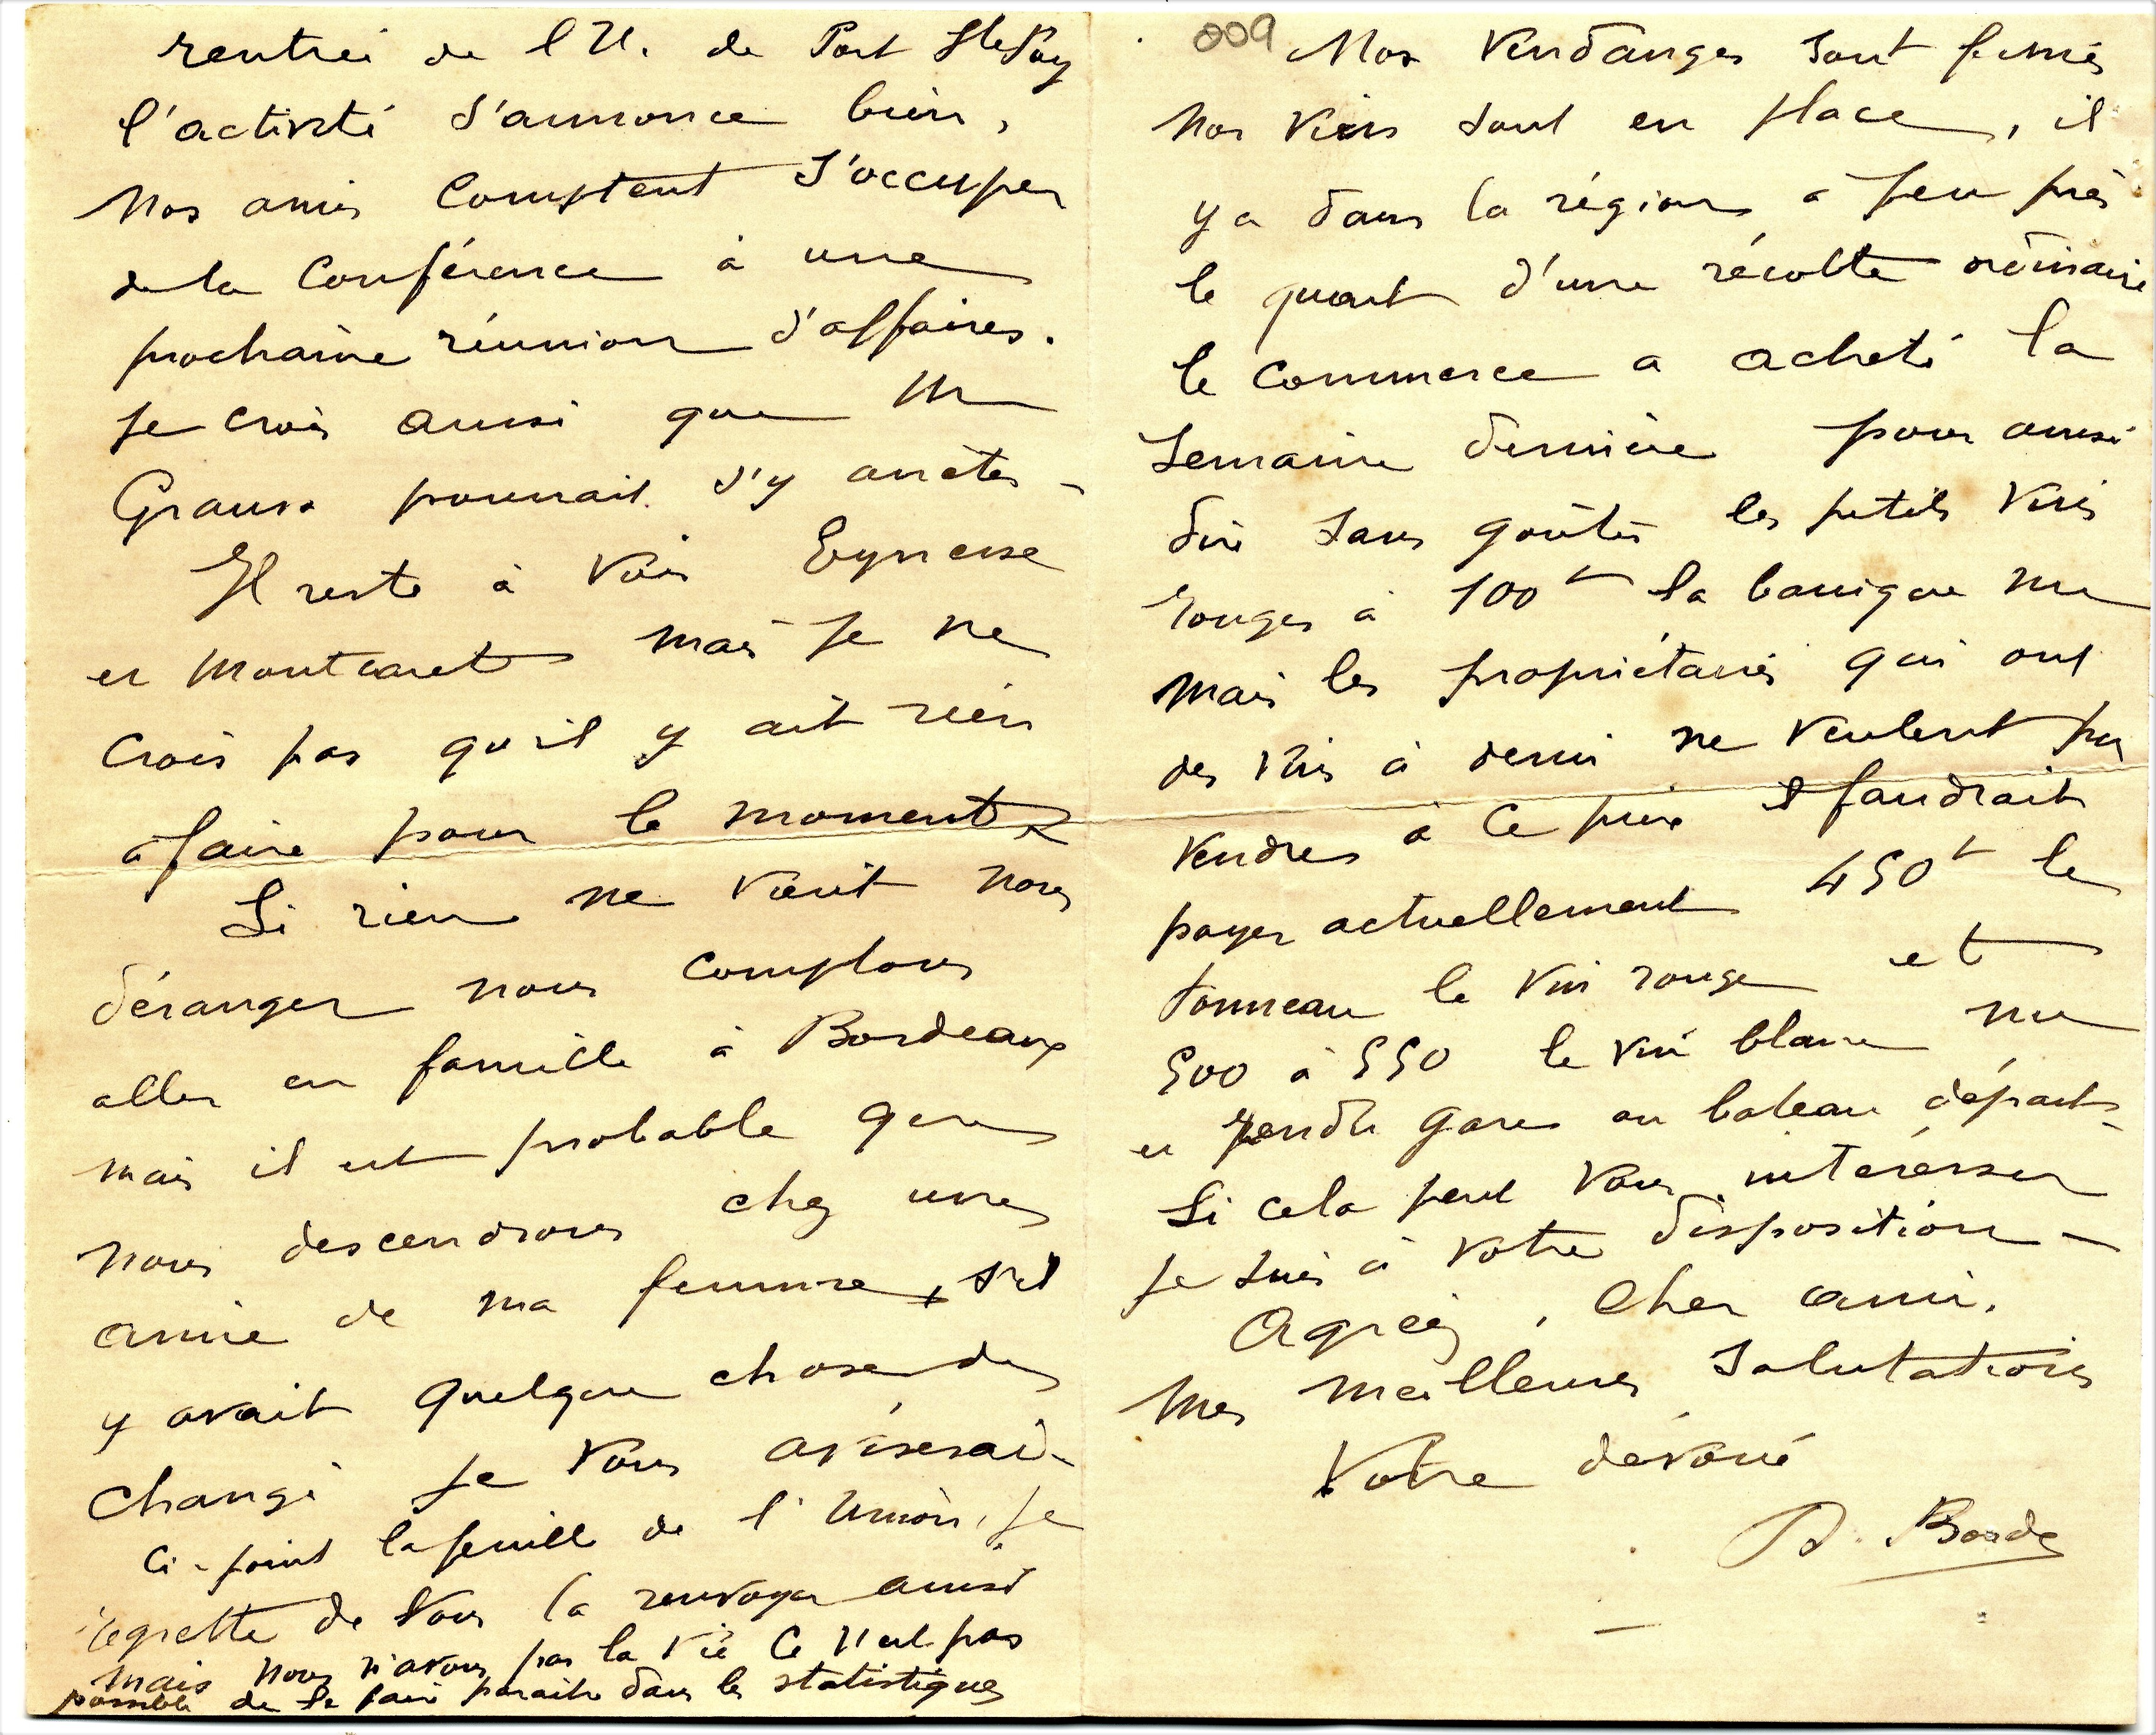 rentrée de l'U. de Port Ste Foy
l'activité s'annonce bien,
Nos amis comptent s'occuper
de la Conférence à une
prochaine réunion d'affaires.
Je crois aussi que Mr
Grauss pourrait s'y arrêter -
Il reste à voir Eynesse
et Montcaret mais je ne
crois pas qu'il y ait rien
à faire pour le moment
Si rien ne vient nous
déranger nous comptons
aller en famille à Bordeaux
mais il est probable que
nous descendrons chez une
amie de ma femme, s'il
y avait quelque chose de
changé je vous aviserai -
Ci-joint la feuille de l'Union, je
regrette de vous la renvoyer ainsi
mais nous n'avons pas la vie ce n'est pas
possible de la faire paraître dans les statistiques
009
Nos vendanges sont finies
nos vins sont en place, il
y a dans la région à peu près
le quart d'une récolte ordinaire
le commerce a acheté la
semaine dernière pour ainsi
dire sans goûter les petits vins
rouges à 100f la barrique nu
mais les propriétaires qui ont
des vins à demi ne veulent pas
vendre à ce prix il faudrait
payer actuellement 450f le
tonneau le vin rouge et
500 à 550 le vin blanc nu
et rendu gare ou bateau départ -
Si cela peut vous intéresser
je suis à votre disposition -
Agréez, cher ami,
mes meilleures salutations
Votre dévoué
D. Borde